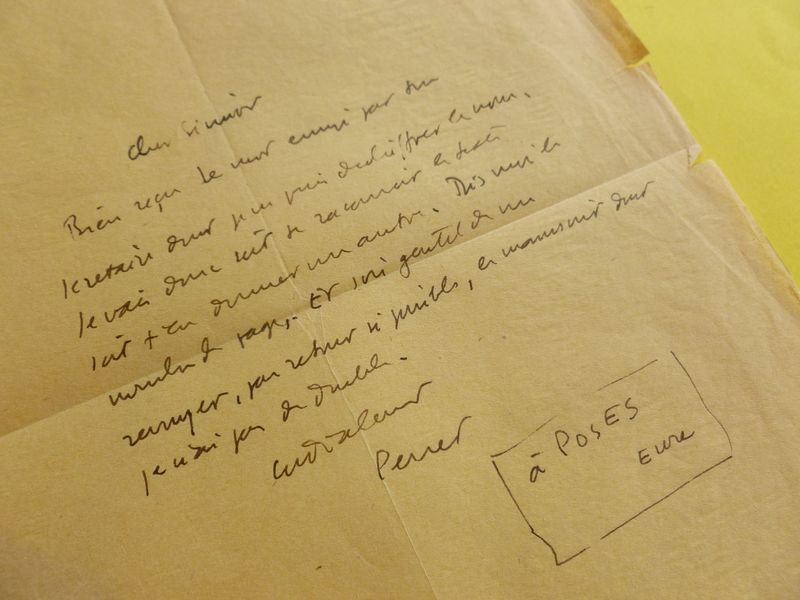 Cher Simoën
Bien reçu le mot envoyé par ton
secretaire dont je ne puis déchiffrer le nom.
Je vais donc soit te raccourcir le texte
soit t'en donner un autre. Dis moi le
nombre de pages. Et sois gentil de me
renvoyer, par retour si possible, le manuscrit dont
je n'ai pas de double.
Cordialement
Perret
à POSES
Eure